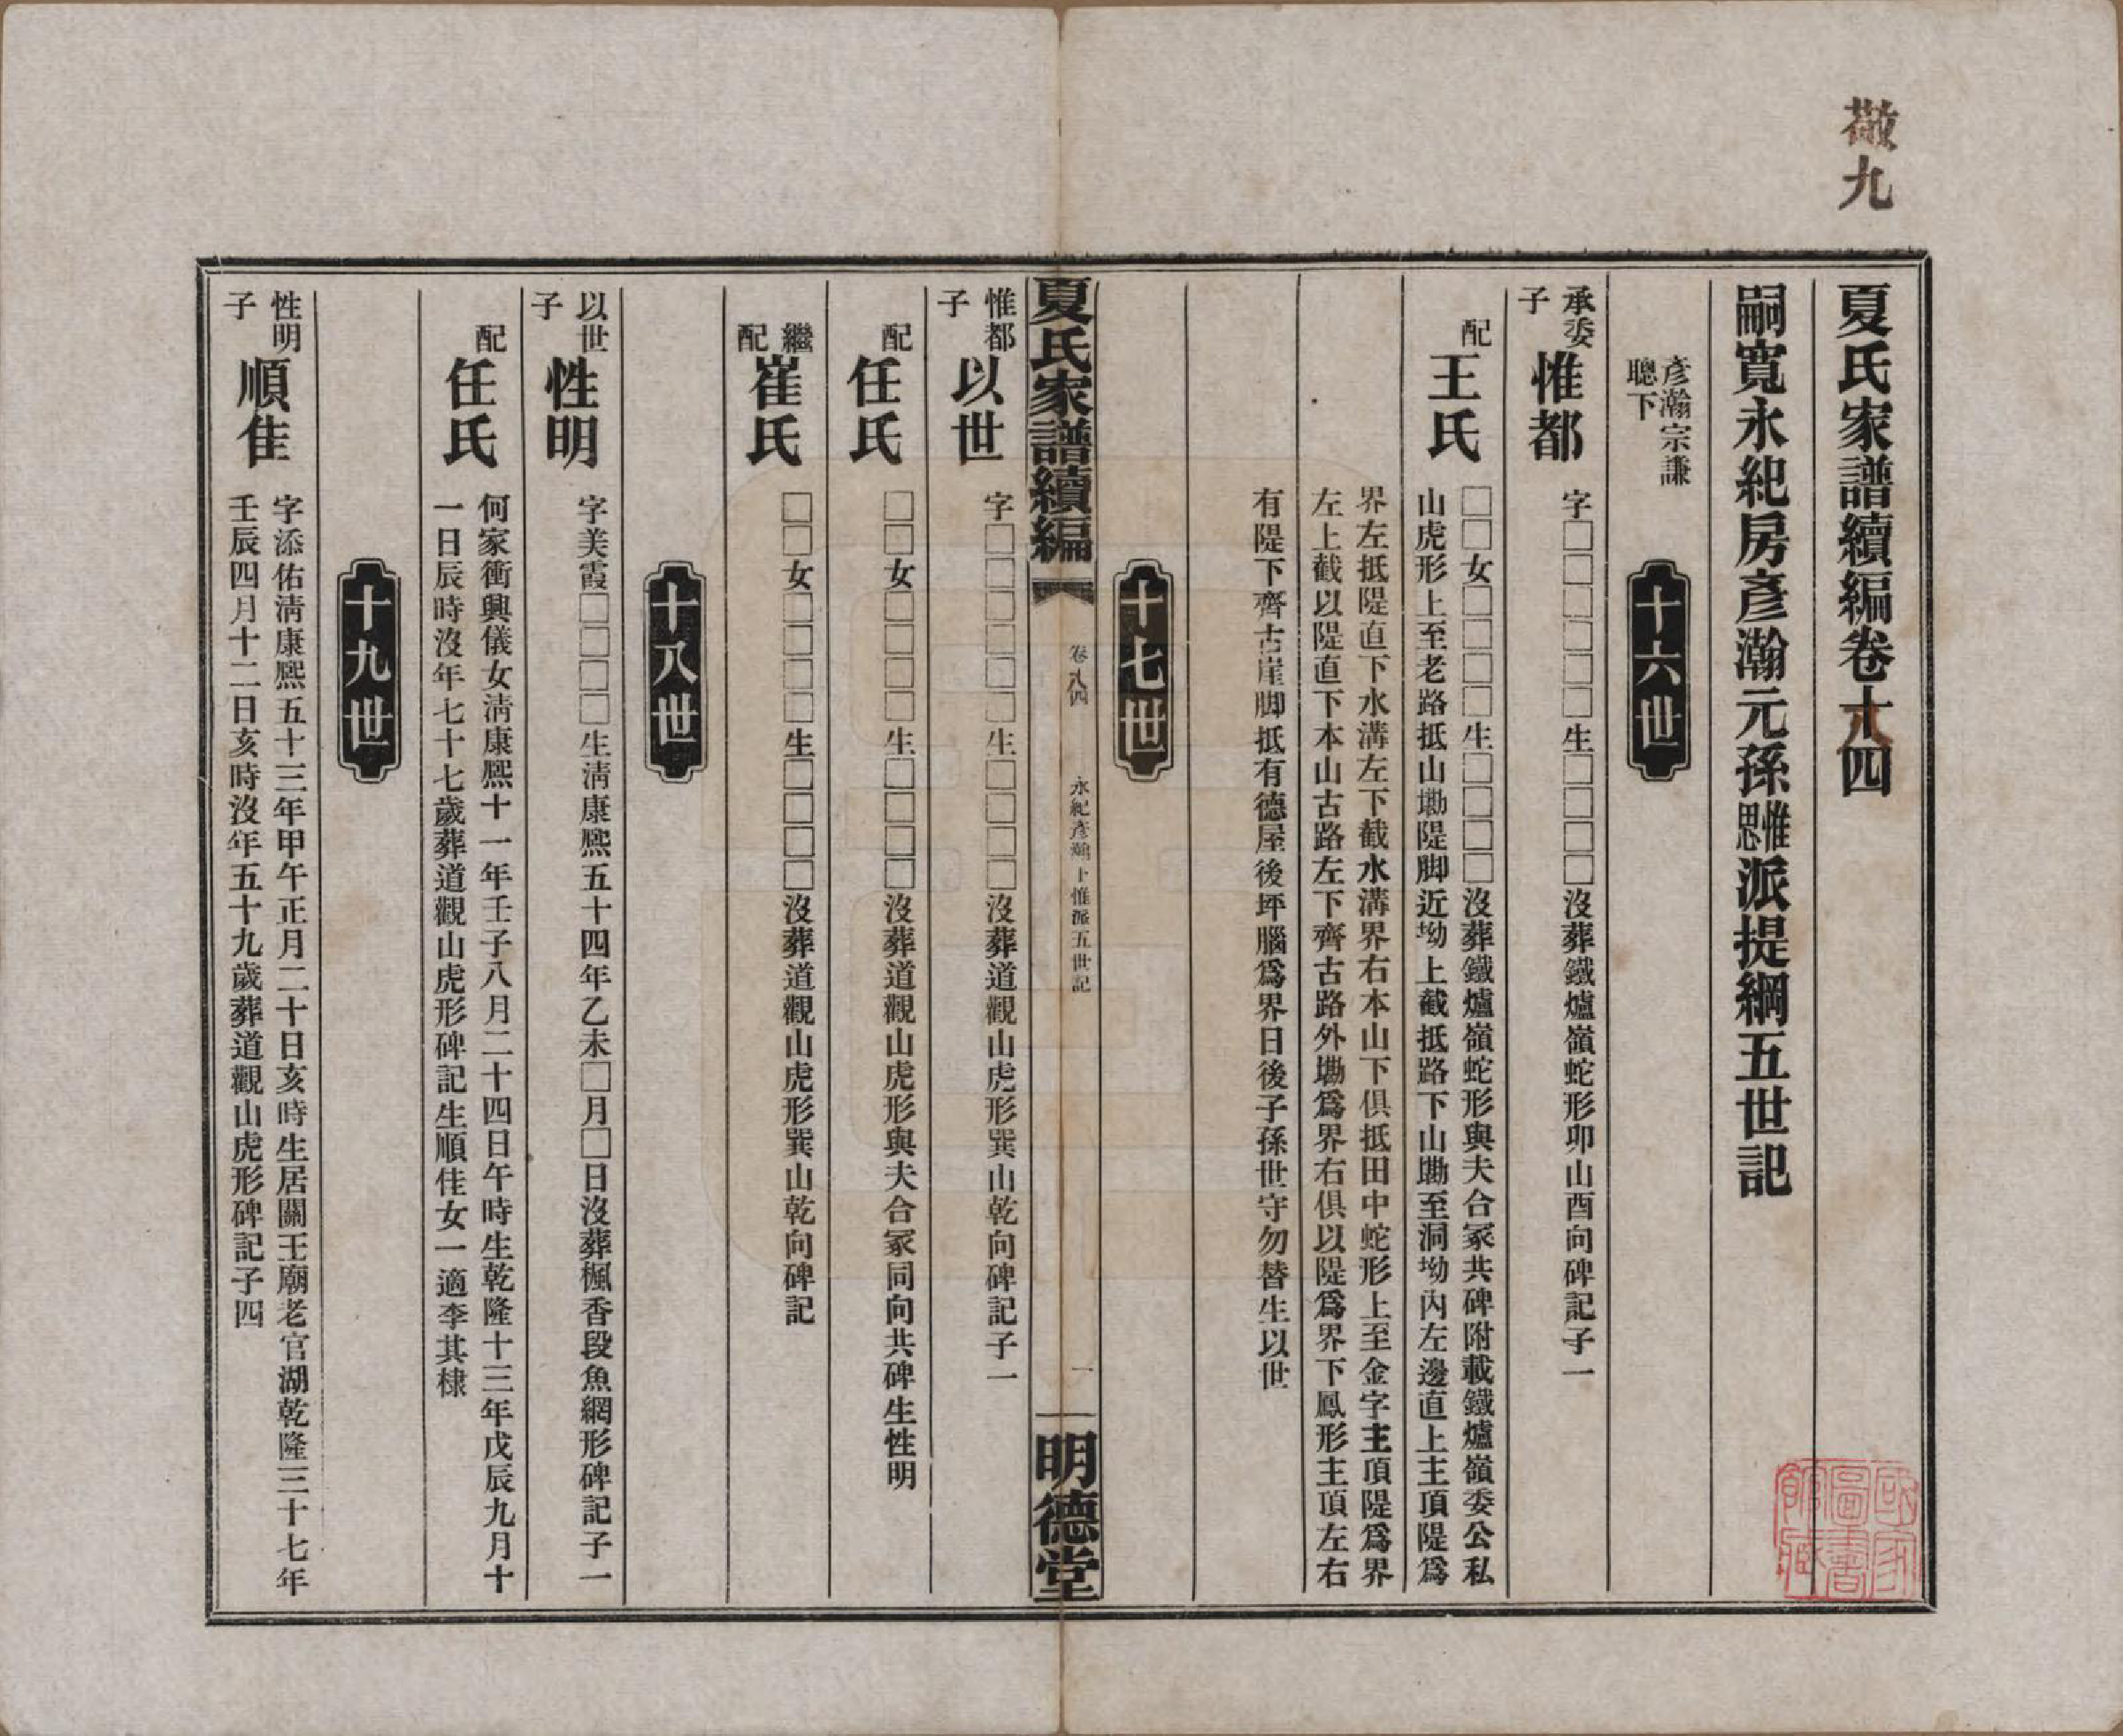 敬九
夏氏家譜續編卷十四
嗣寬永紀房彥瀚元孫惟思派提綱五世記
彥瀚宗謙
聰下
十六世
承委
子
惟都
字□□□□□□生□□□□沒葬鐵爐嶺蛇形卯山酉向碑記子一
配
王氏
□□女□□□□生□□□□沒葬鐵爐嶺蛇形與夫合冢共碑附載鐵爐嶺委公私
山虎形上至老路抵山墈隄脚近坳上截抵路下山墈至洞坳內左邊直上主頂隄爲
界左抵隄直下水溝左下截水溝界右本山下俱抵田中蛇形上至金字主頂隄爲界
左上截以隄直下本山古路左下齊古路外墈爲界右俱以隄爲界下鳳形主頂左右
有隄下齊古崖脚抵有德屋後坪腦爲界日後子孫世守勿替生以世
十七世
夏氏家譜續編
永紀彥瀚下惟派五世記
一
明德堂
惟都
子
以世
字□□□□□□生□□□□沒葬道觀山虎形巽山乾向碑記子一
配
任氏
□□女□□□□生□□□□沒葬道觀山虎形與夫合冢同向共碑生性明
繼
配
崔氏
□□女□□□□生□□□□沒葬道觀山虎形巽山乾向碑記
十八世
以世
子
性明
字美霞□□□□生清康熙五十四年乙未□月□日沒葬楓香段魚網形碑記子一
配
任氏
何家衝興儀女清康熙十一年壬子八月二十四日午時生乾隆十三年戊辰九月十
一日辰時沒年七十七歲葬道觀山虎形碑記生順佳女一適李其棣
十九世
性明
子
順佳
字添佑清康熙五十三年甲午正月二十日亥時生居關王廟老官湖乾隆三十七年
壬辰四月十二日亥時沒年五十九歲葬道觀山虎形碑記子四
國家
圖書
館藏